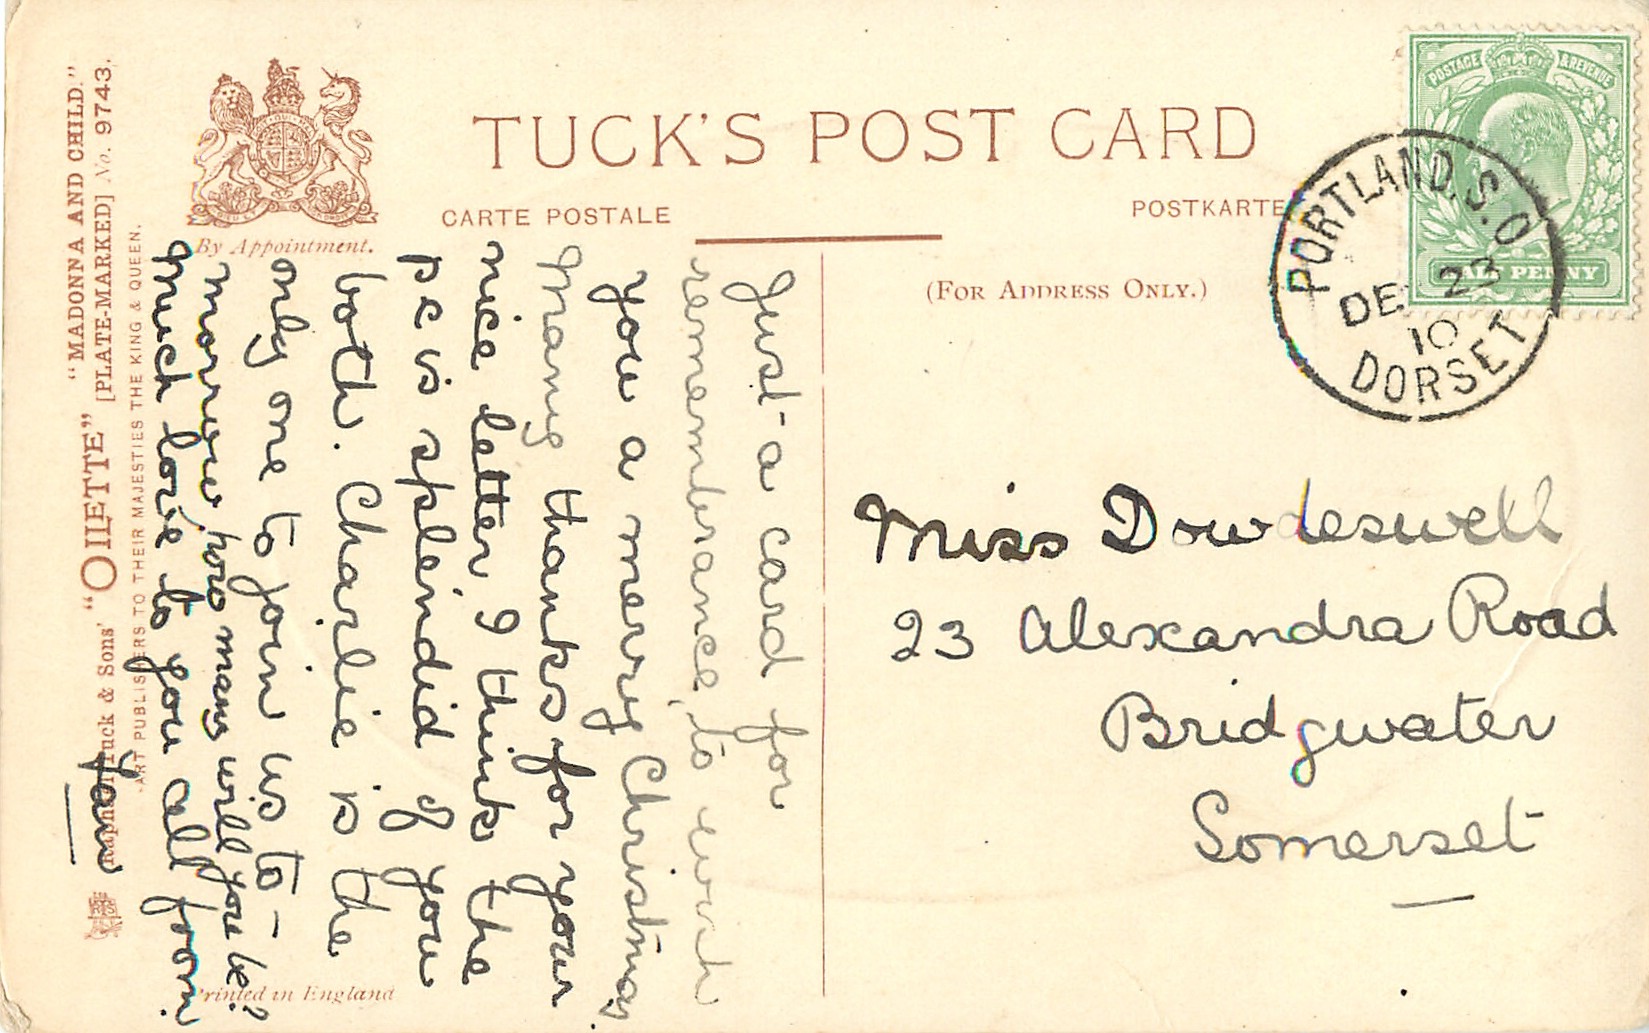 TUCK'S POST CARD
CARTE POSTALE
POSTKARTE
(FOR ADDRESS ONLY.)
By Appointment.
POSTAGE & REVENUE
HALF PENNY
PORTLAND. S.O
DE 23
10
DORSET
Just a card for
remembrance, to wish
you a merry Christmas
Many thanks for your
nice letter, I think the
pc is splendid of you
both. Charlie is the
only one to join us to-
morrow, how many will you be?
much love to you all from
Miss Dowdeswell
23 Alexandra Road
Bridgwater
Somerset
Raphael Tuck & Sons' "OILETTE" "MADONNA AND CHILD."
[PLATE-MARKED] No. 9743.
ART PUBLISHERS TO THEIR MAJESTIES THE KING & QUEEN.
Printed in England